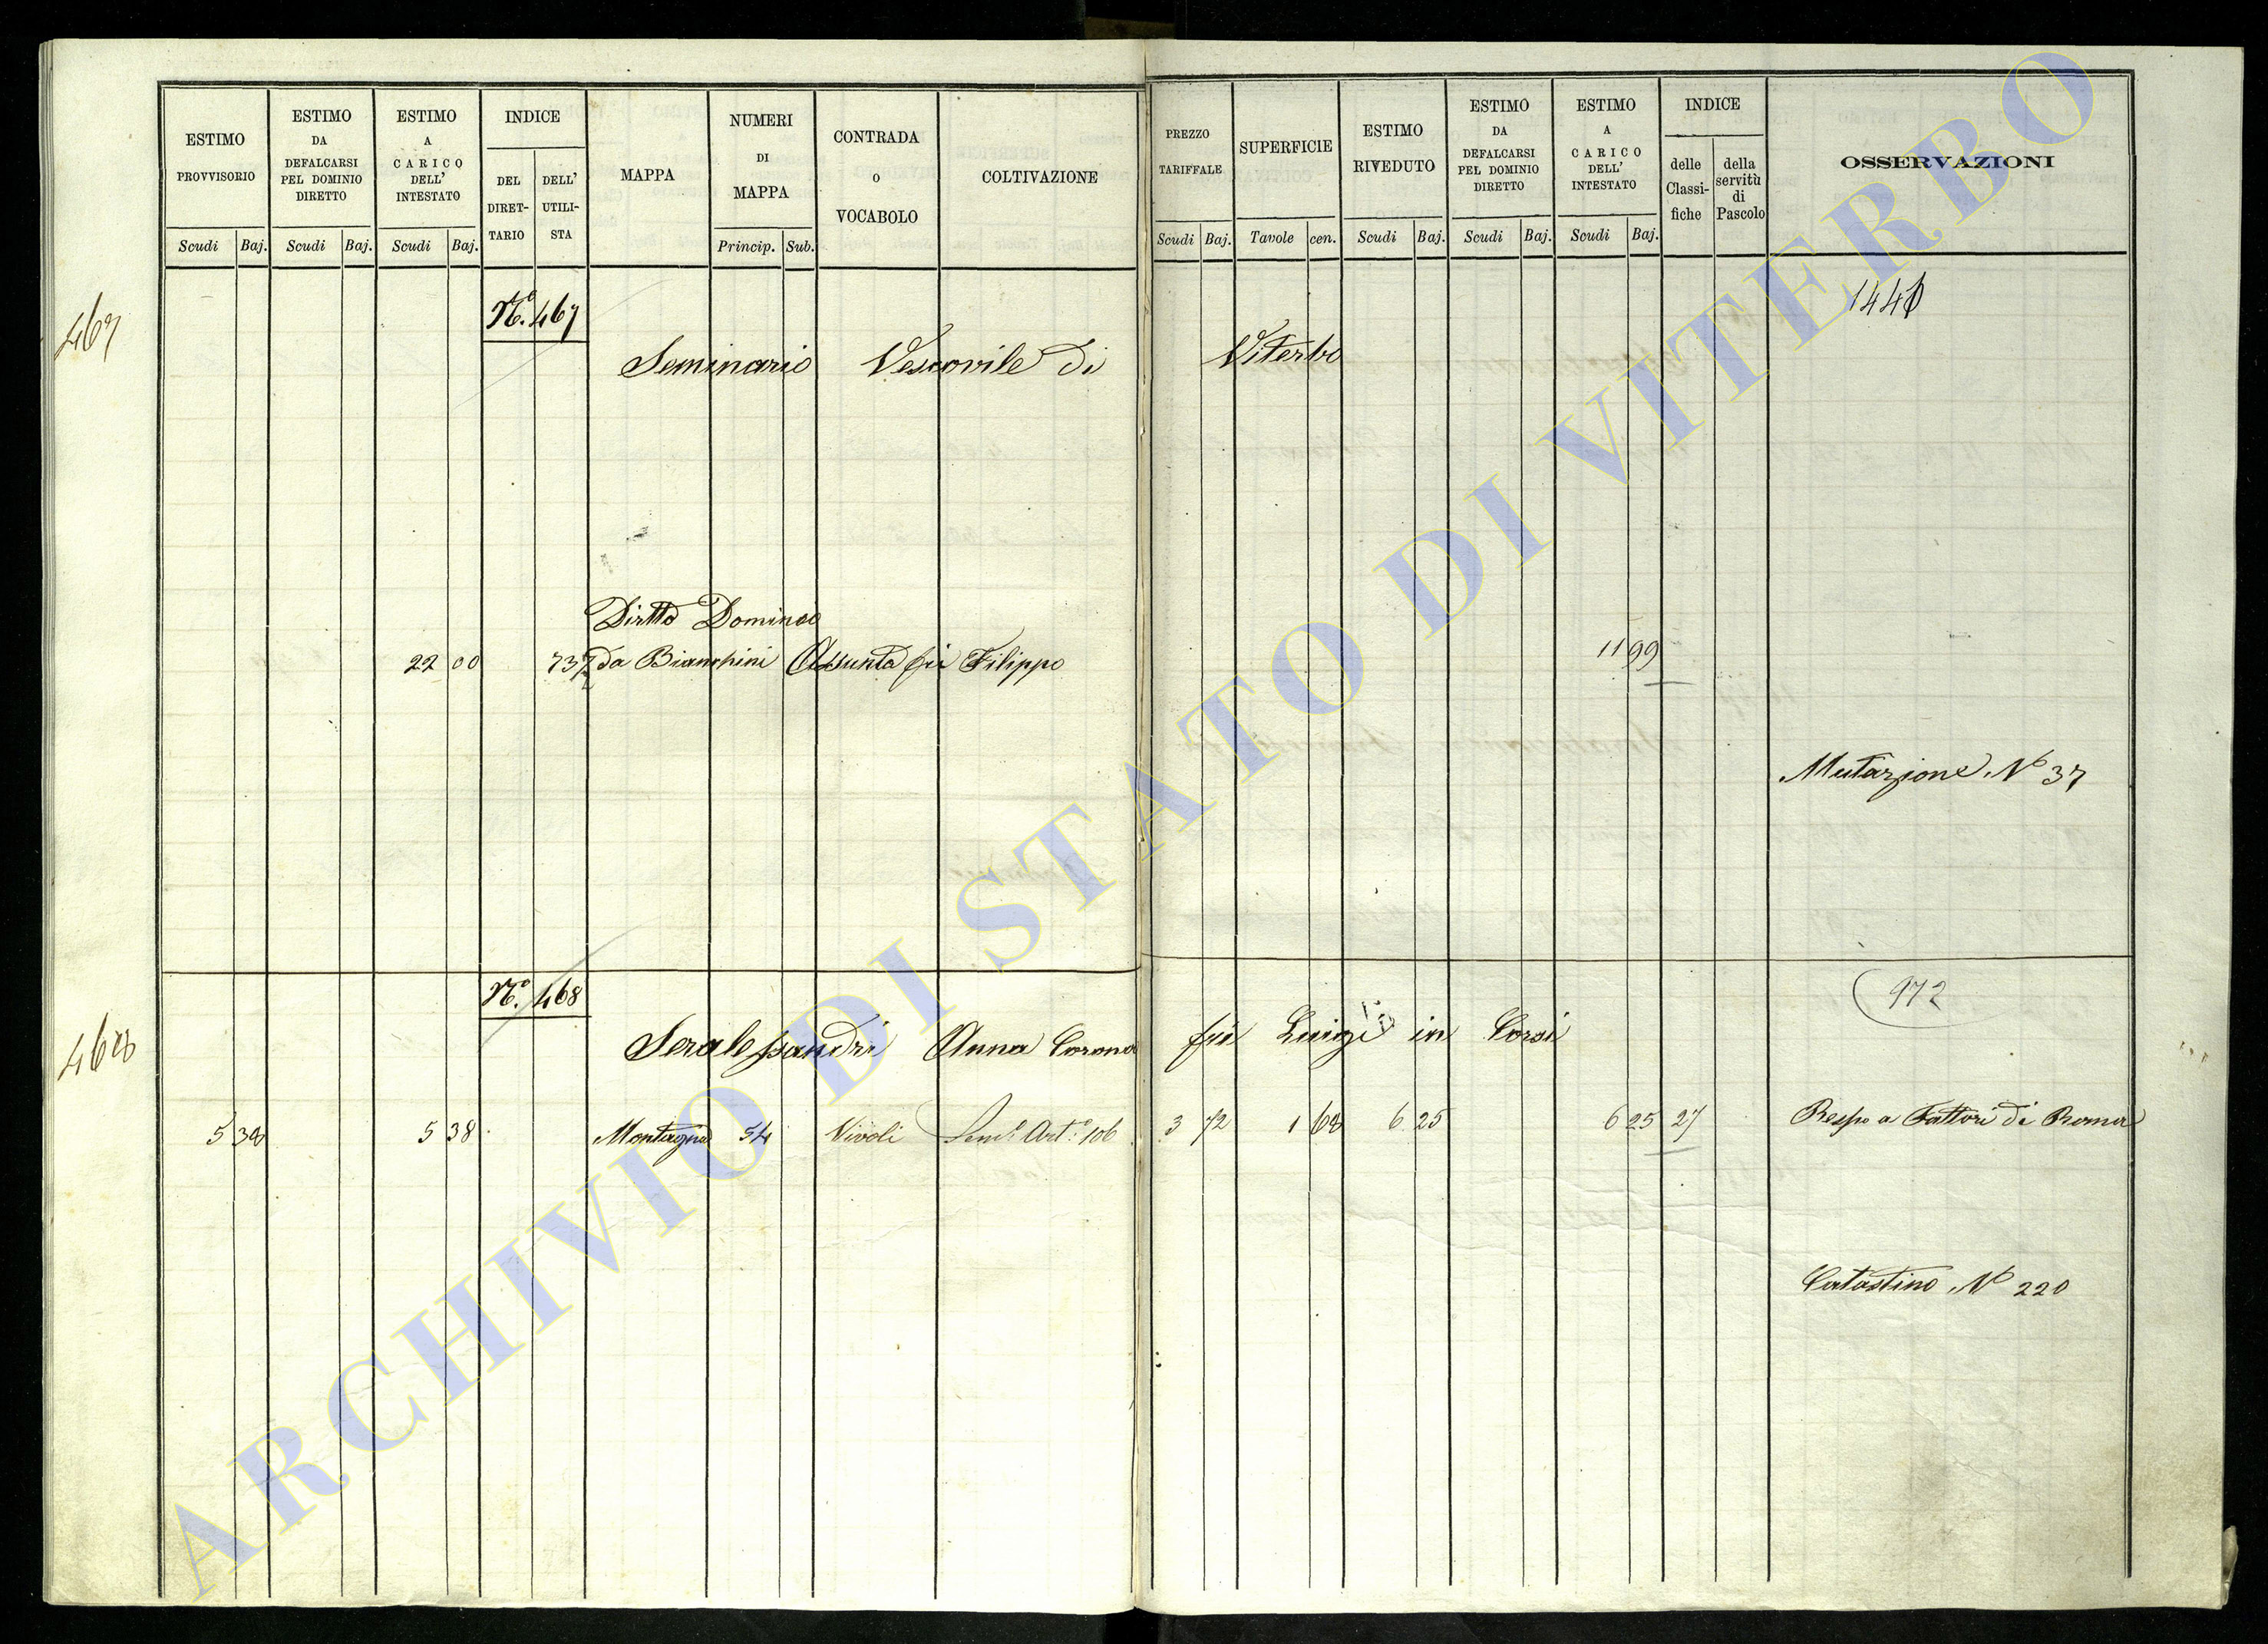 ESTIMO PROVVISORIO
Scudi Baj.
ESTIMO DA DEFALCARSI PEL DOMINIO DIRETTO
Scudi Baj.
ESTIMO A CARICO DELL' INTESTATO
Scudi Baj.
INDICE
DEL DIRET-TARIO
DELL' UTILI-STA
MAPPA
NUMERI DI MAPPA
Princip. Sub.
CONTRADA O VOCABOLO
COLTIVAZIONE
PREZZO TARIFFALE
Scudi Baj.
SUPERFICIE
Tavole cen.
ESTIMO RIVEDUTO
Scudi Baj.
ESTIMO DA DEFALCARSI PEL DOMINIO DIRETTO
Scudi Baj.
ESTIMO A CARICO DELL' INTESTATO
Scudi Baj.
INDICE
delle Classi-fiche
della servitù di Pascolo
OSSERVAZIONI
467
N.º 467
Seminario Vescovile di Viterbo
Dirtto Dominio
22 00 737 da Bianchini Assunta fu Filippo 11 99
Mutazione Nº 37
468
N.º 468
972
Seralessandri Anna Corona fu Luigi in Corsi
5 38 5 38 Montagna 54 Vivoli Sem.º Art.º 106 3 72 1 68 6 25 6 25 27 Respo a Fattori di Roma
Catastino Nº 220
ARCHIVIO DI STATO DI VITERBO